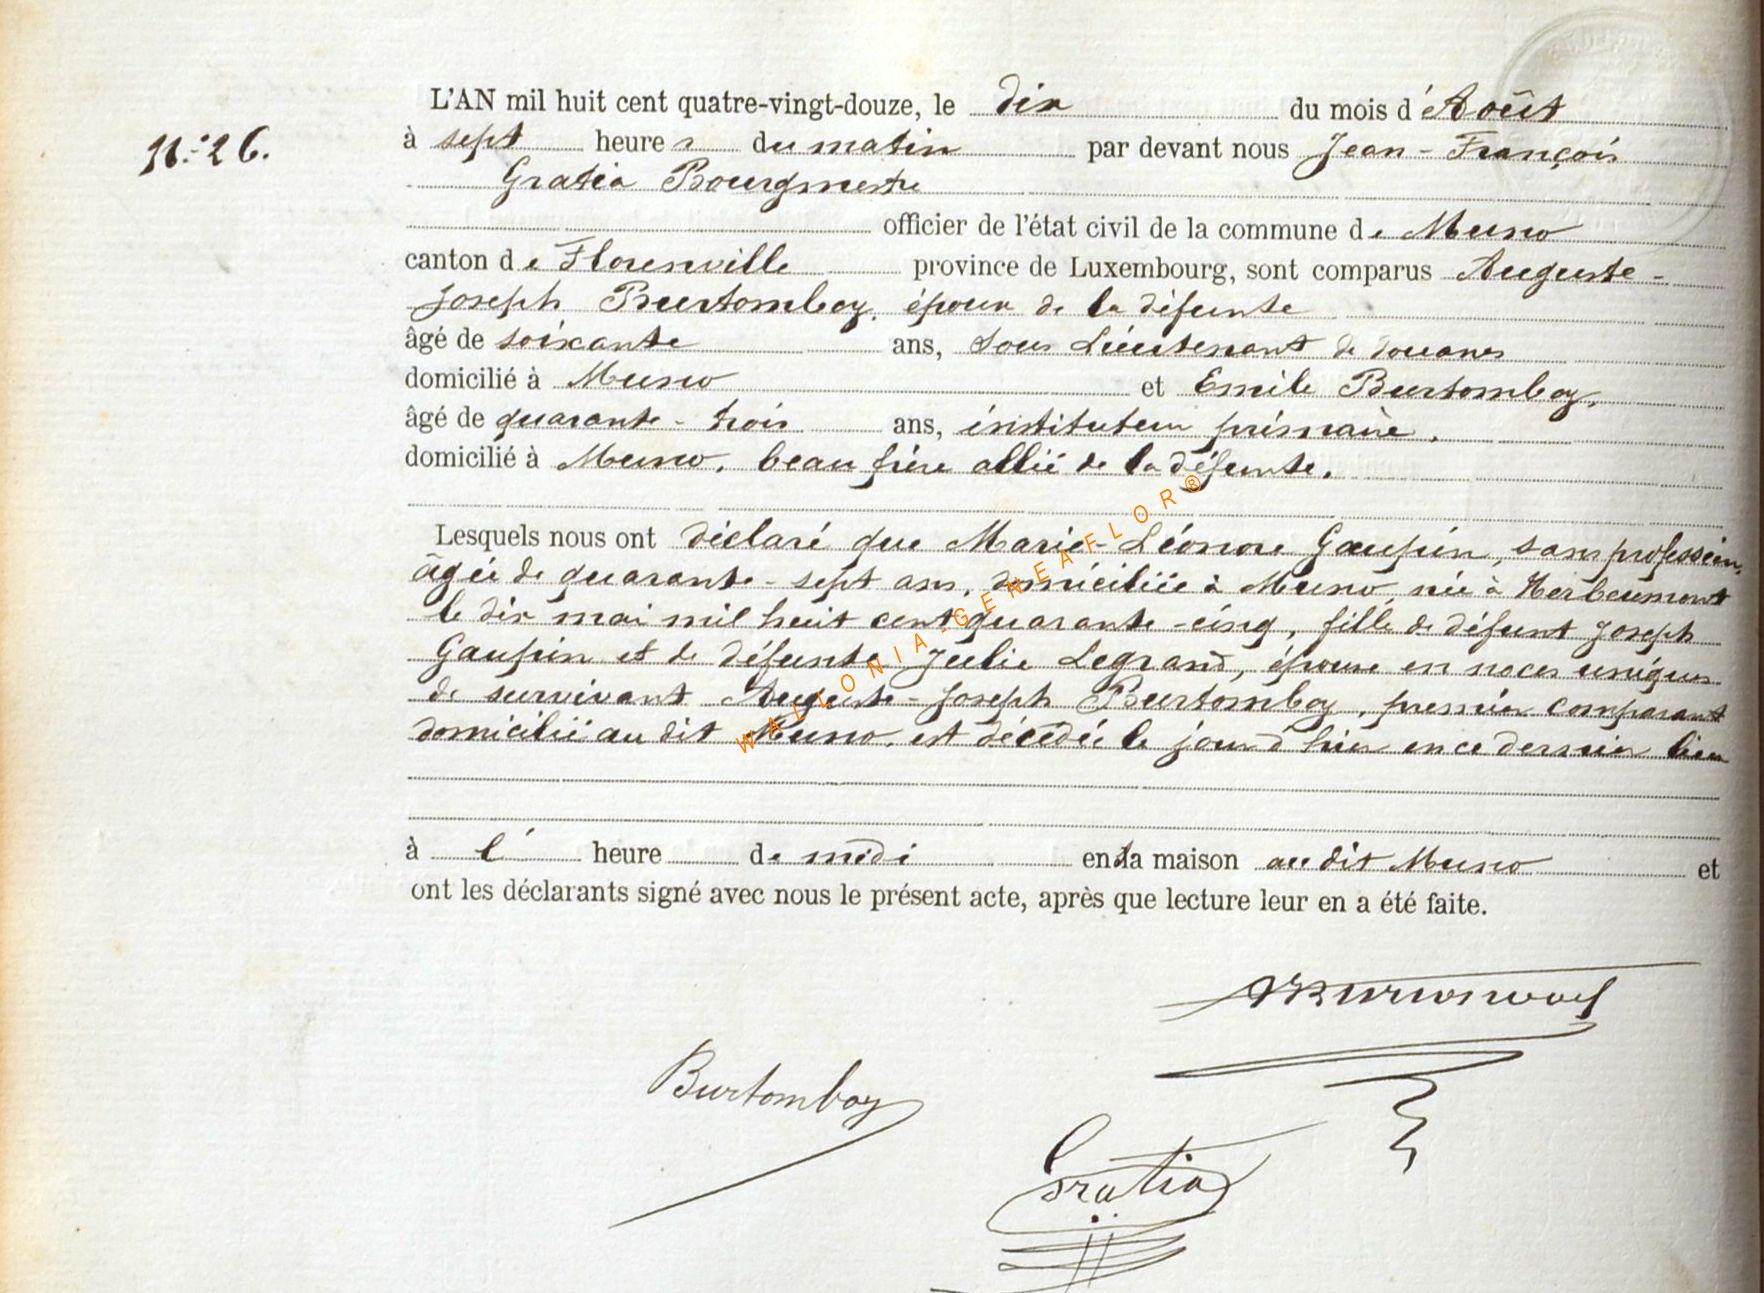 N.° 26.
L'AN mil huit cent quatre-vingt-douze, le dix du mois d'Août
à sept heures du matin par devant nous Jean-François
Gratia Bourgmestre
officier de l'état civil de la commune de Muno
canton de Florenville province de Luxembourg, sont comparus Auguste-
Joseph Burtomboy, époux de la défunte
âgé de soixante ans, Sous Lieutenant de douanes
domicilié à Muno et Emile Burtomboy,
âgé de quarante-trois ans, instituteur primaire,
domicilié à Muno, beau frère allié de la défunte.
Lesquels nous ont déclaré que Marie-Léonore Gaupin, sans profession,
âgée de quarante-sept ans, domiciliée à Muno, née à Herbeumont
le dix mai mil huit cent quarante-cinq, fille de défunt Joseph
Gaupin et de défunte Julie Legrand, épouse en noces uniques
de survivant Auguste-Joseph Burtomboy, premier comparant
domicilié au dit Muno, est décédée le jour d'hier en ce dernier lieu
à l' heure de midi en la maison au dit Muno et
ont les déclarants signé avec nous le présent acte, après que lecture leur en a été faite.
Burtomboy
Gratia
WALLONIA-GENEAFLOR®